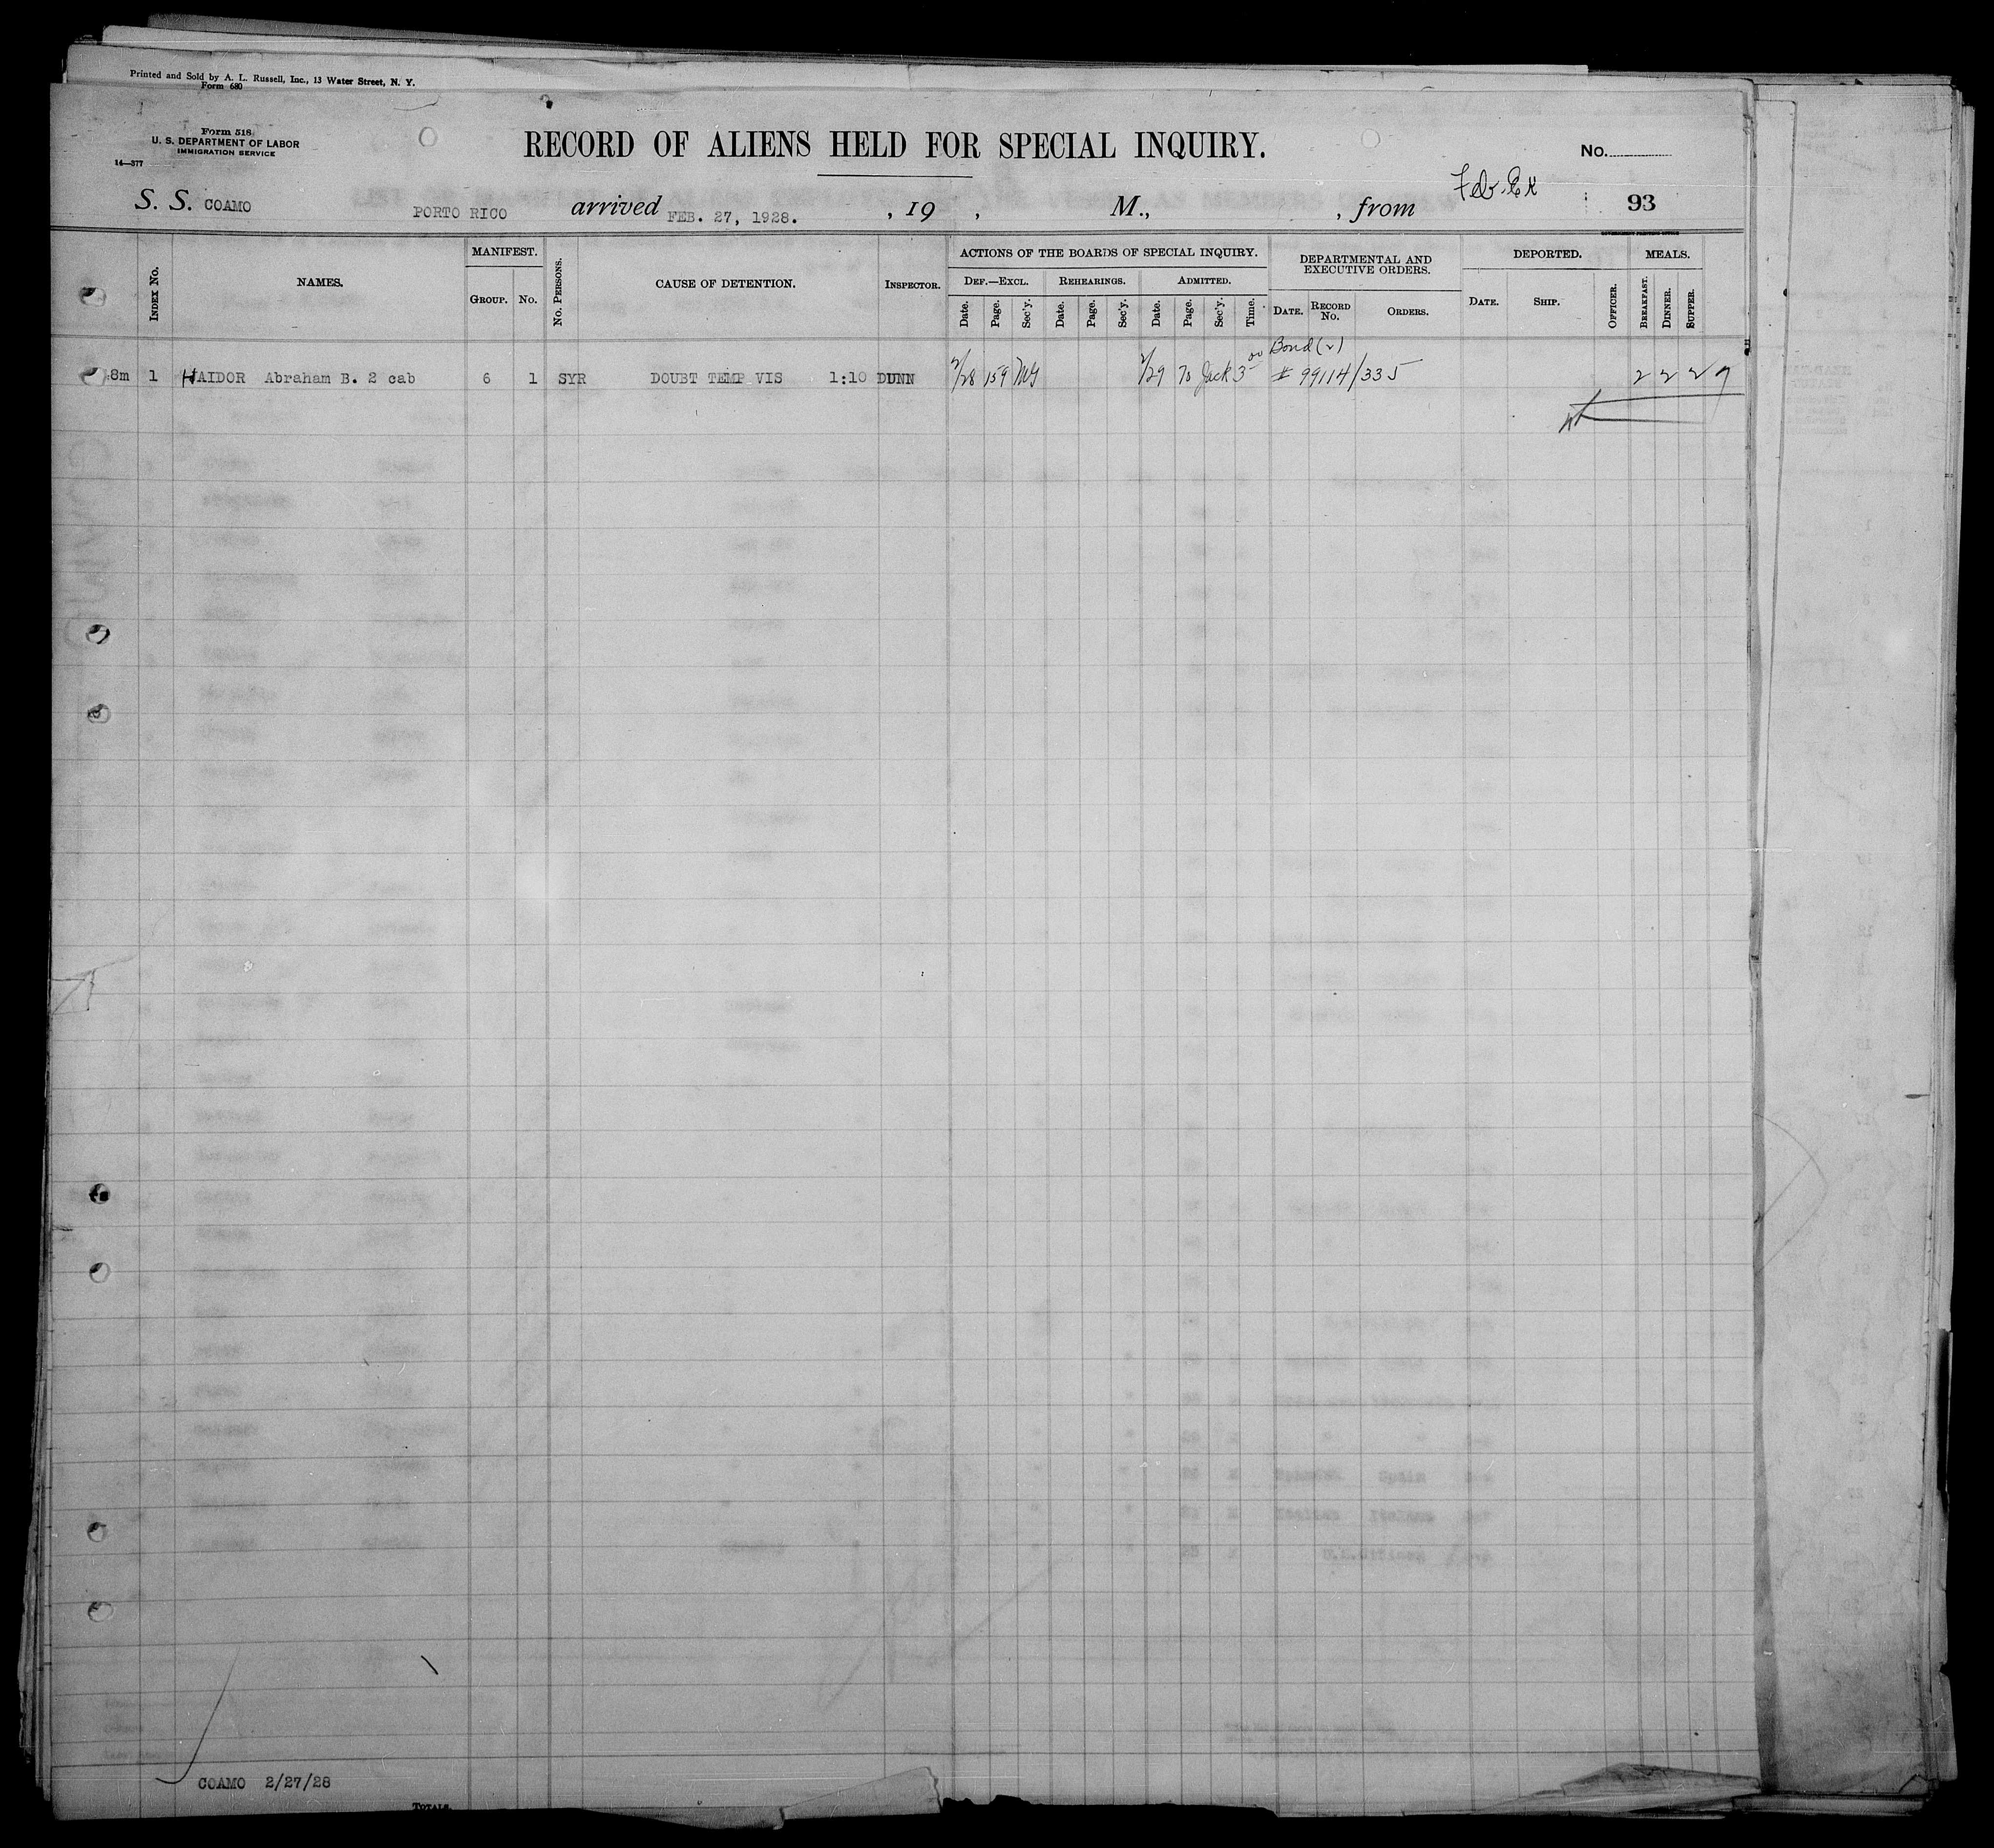 Printed and Sold by A. L. Russell, Inc., 13 Water Street, N. Y.
Form 680
Form 518
U. S. DEPARTMENT OF LABOR
IMMIGRATION SERVICE
14—377
RECORD OF ALIENS HELD FOR SPECIAL INQUIRY.
No.
S. S. COAMO PORTO RICO arrived FEB. 27, 1928. , 19 , M., , from 93
GOVERNMENT PRINTING OFFICE
INDEX NO. NAMES. MANIFEST. GROUP. NO. NO. PERSONS. CAUSE OF DETENTION. INSPECTOR. ACTIONS OF THE BOARDS OF SPECIAL INQUIRY. DEF.—EXCL. Date. Page. Sec'y. REHEARINGS. Date. Page. Sec'y. ADMITTED. Date. Page. Sec'y. Time. DEPARTMENTAL AND EXECUTIVE ORDERS. DATE. RECORD NO. ORDERS. DEPORTED. DATE. SHIP. OFFICER. MEALS. BREAKFAST. DINNER. SUPPER.
Bond (2)
8m 1 HAIDOR Abraham B. 2 cab 6 1 SYR DOUBT TEMP VIS 1:10 DUNN 2/28 159 2/29 70 Jack 3 00 # 99114/335 2 2 2
COAMO 2/27/28
TOTALS.